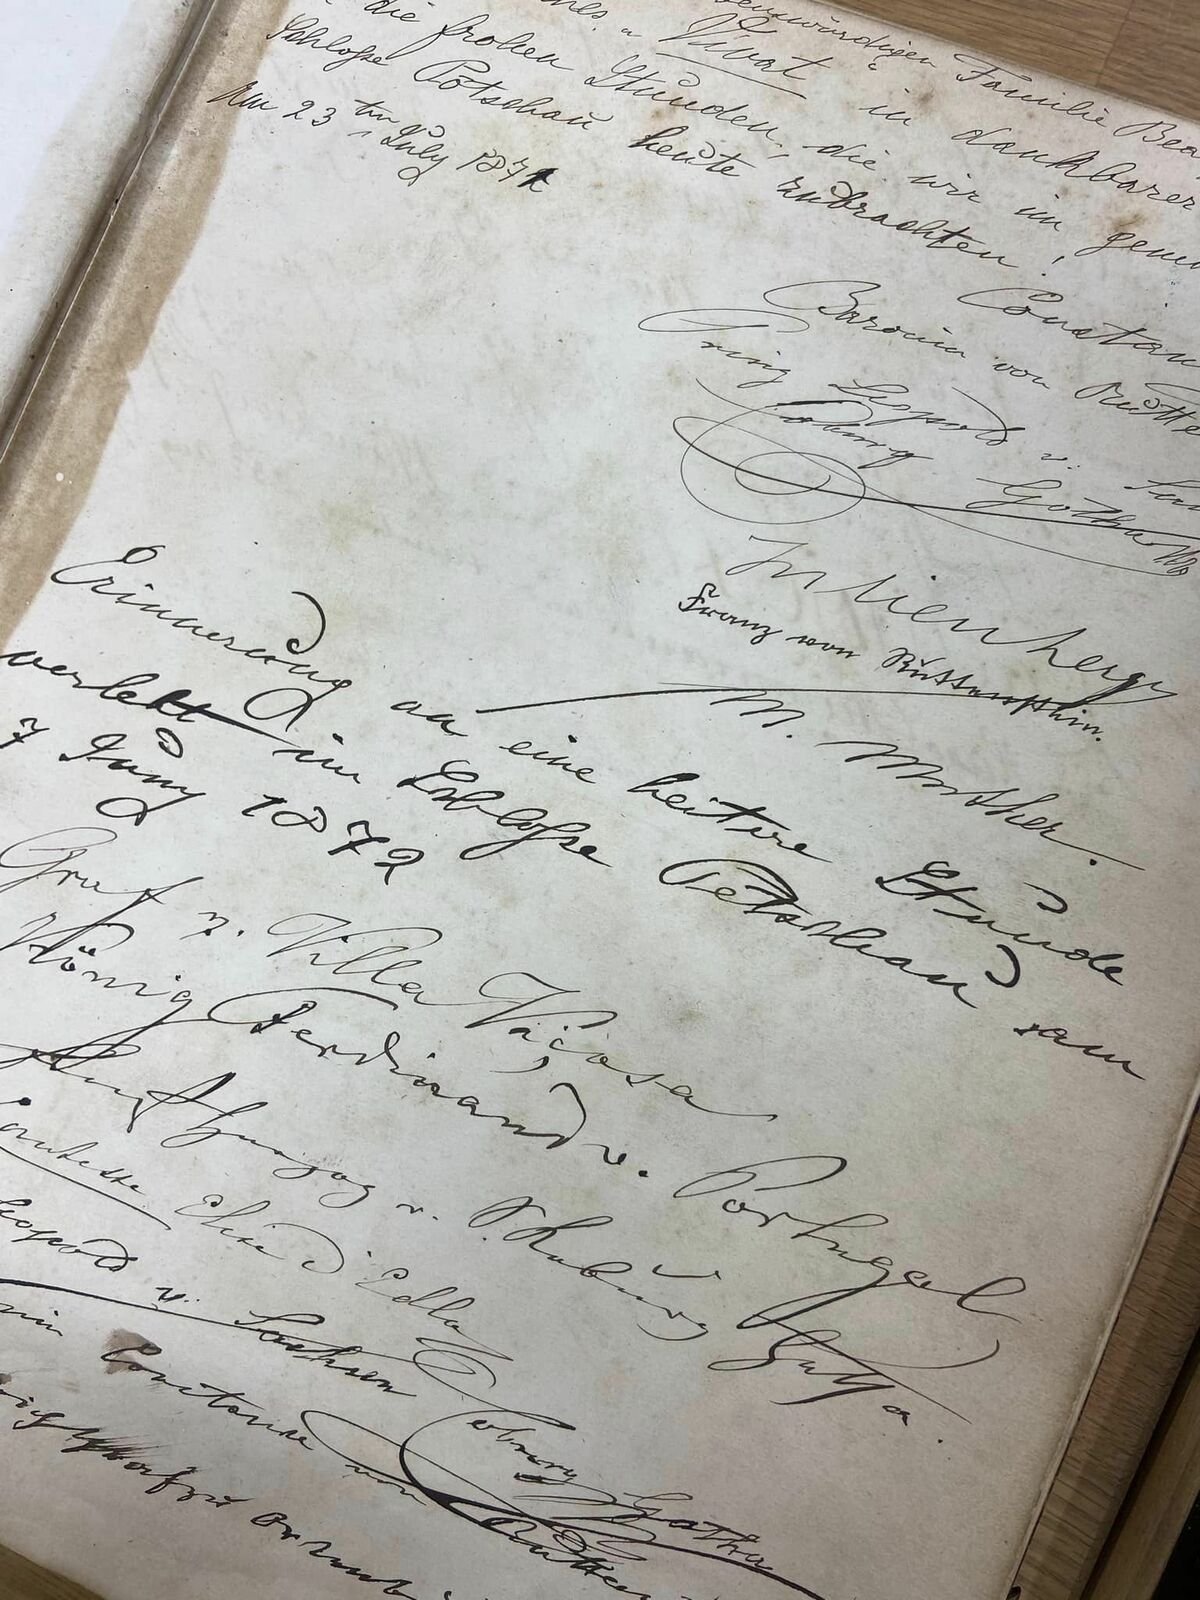 Familie Bea
Vivat in dankbarer
die frohen Stunden, die wir im gemü
Schloße Pötschau heute zubrachten!
Am 23 ten July 1871
Constan
Baronin von Rütte
Prinz Leopold v. Sac
Coburg Gotha
Franz von Ruttenstein.
M. Mosher.
Erinnerung an eine heitere Stunde
verlebt im Schloße Petschau am
7 Juny 1872
Graf v. Villa Viçosa
König Ferdinand v. Portugal
Herzog v. S. Koburg Gotha.
Comtesse Elise d'Edla
Leopold v. Sachsen Coburg Gotha
Constance von Rutten